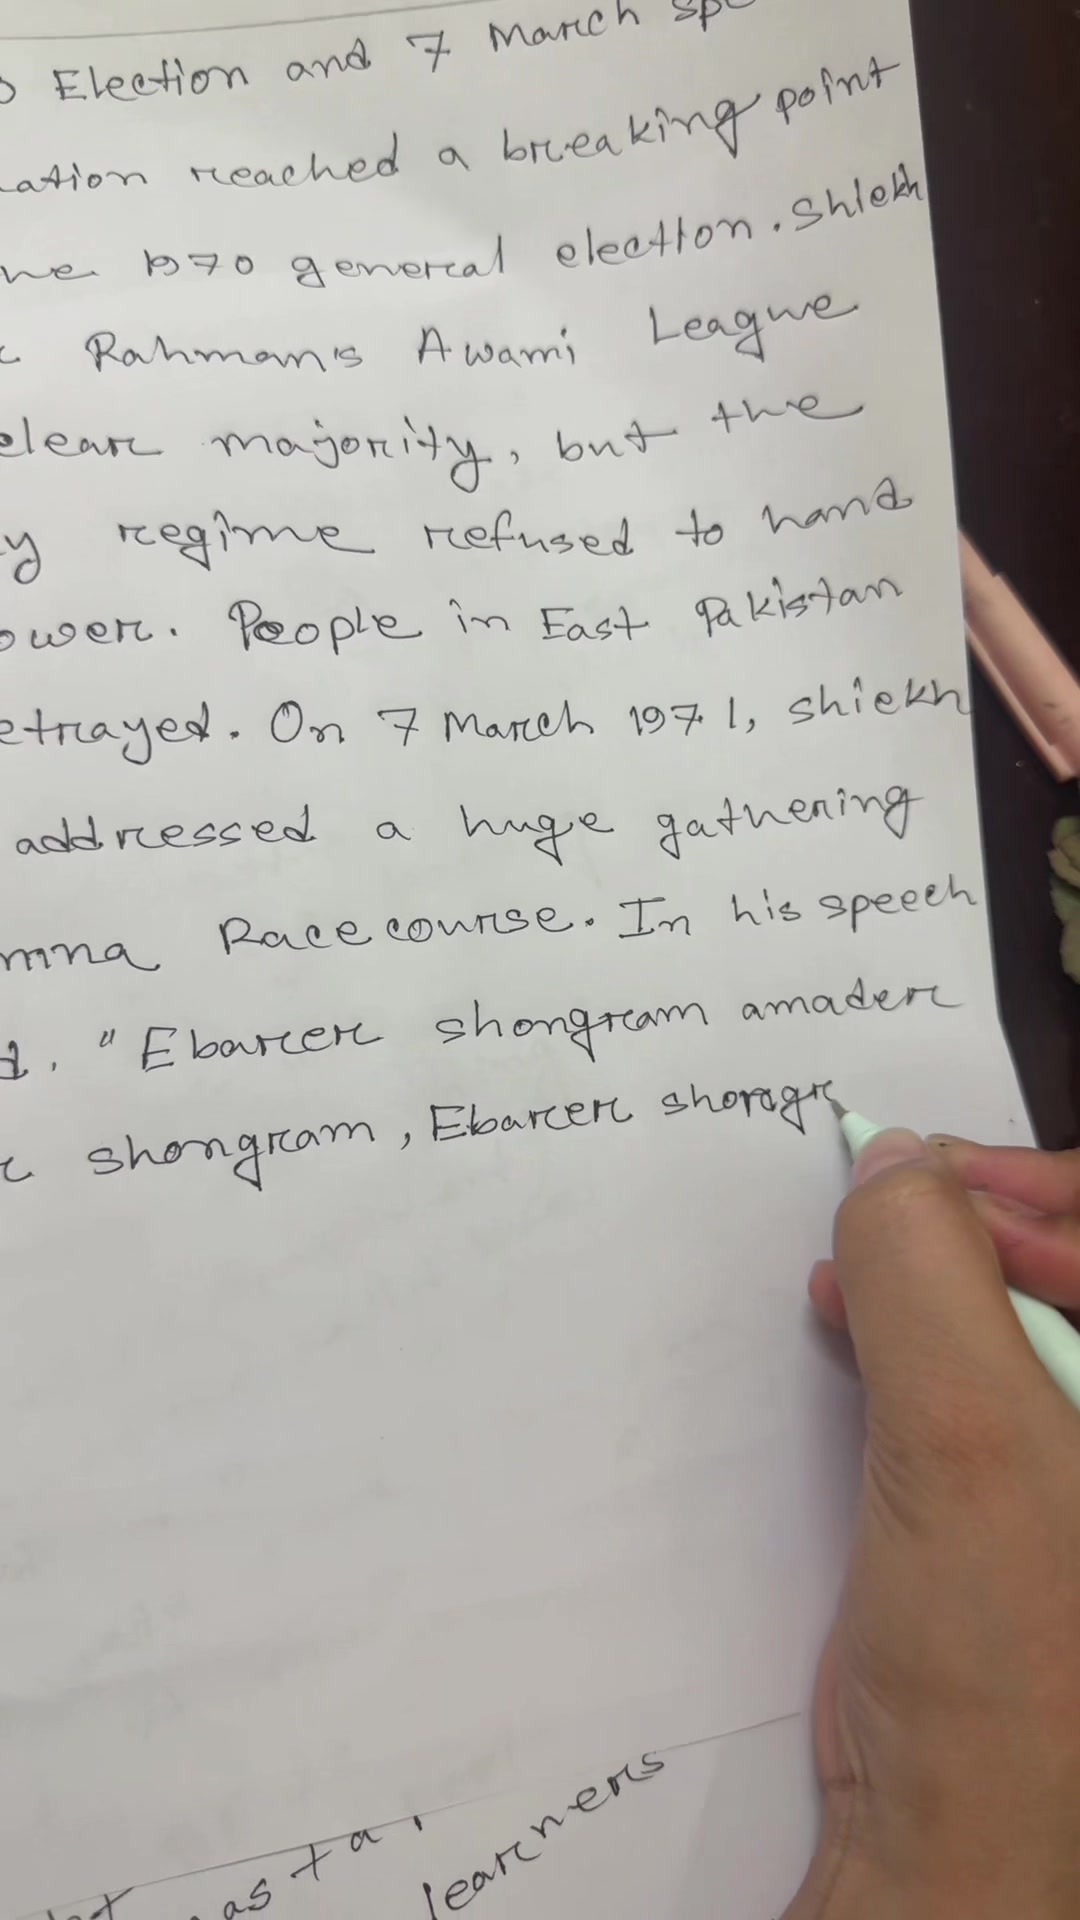 Election and 7 March sp
ation reached a breaking point
he 1970 general election. Shiekh
Rahman's Awami League
clear majority, but the
y regime refused to hand
ower. People in East Pakistan
etrayed. On 7 March 1971, shiekh
addressed a huge gathering
mna Race course. In his speech
d, "Ebarer shongram amader
r shongram, Ebarer shongr
as ta
learners